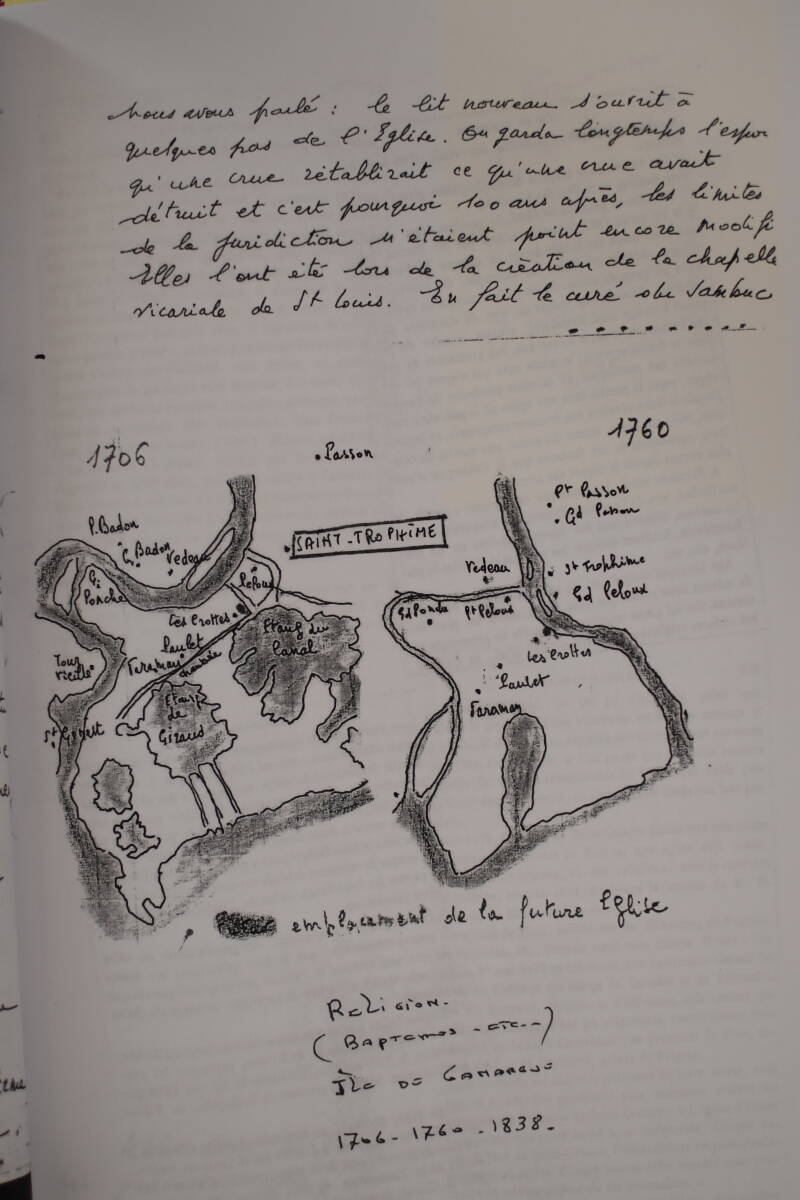 nous avons parlé : le lit nouveau s'ouvrit à
quelques pas de l'Eglise. On garda longtemps l'espoir
qu'une crue rétablirait ce qu'une crue avait
détruit et c'est pourquoi 100 ans après, les limites
de la juridiction n'étaient point encore modifi
Elles l'ont été lors de la création de la chapelle
vicariale de St Louis. En fait le curé du Sambuc
1706
Passon
1760
SAINT-TROPHIME
P. Badon
G. Badon
Vedeau
Peloux
Gd Ponche
Les Crottes
Etang du
Canal
Paulet
Faraman
Tour
vieille
Etang
de
Giraud
St Genest
Pt Passon
Gd Passon
Vedeau
St Trophime
Gd Peloux
Gd Ponche
Pt Peloux
Les Crottes
Paulet
Faraman
emplacement de la future Eglise
Religion.
(Baptemes - etc--)
Île de Camargue
1706 - 1760 - 1838.